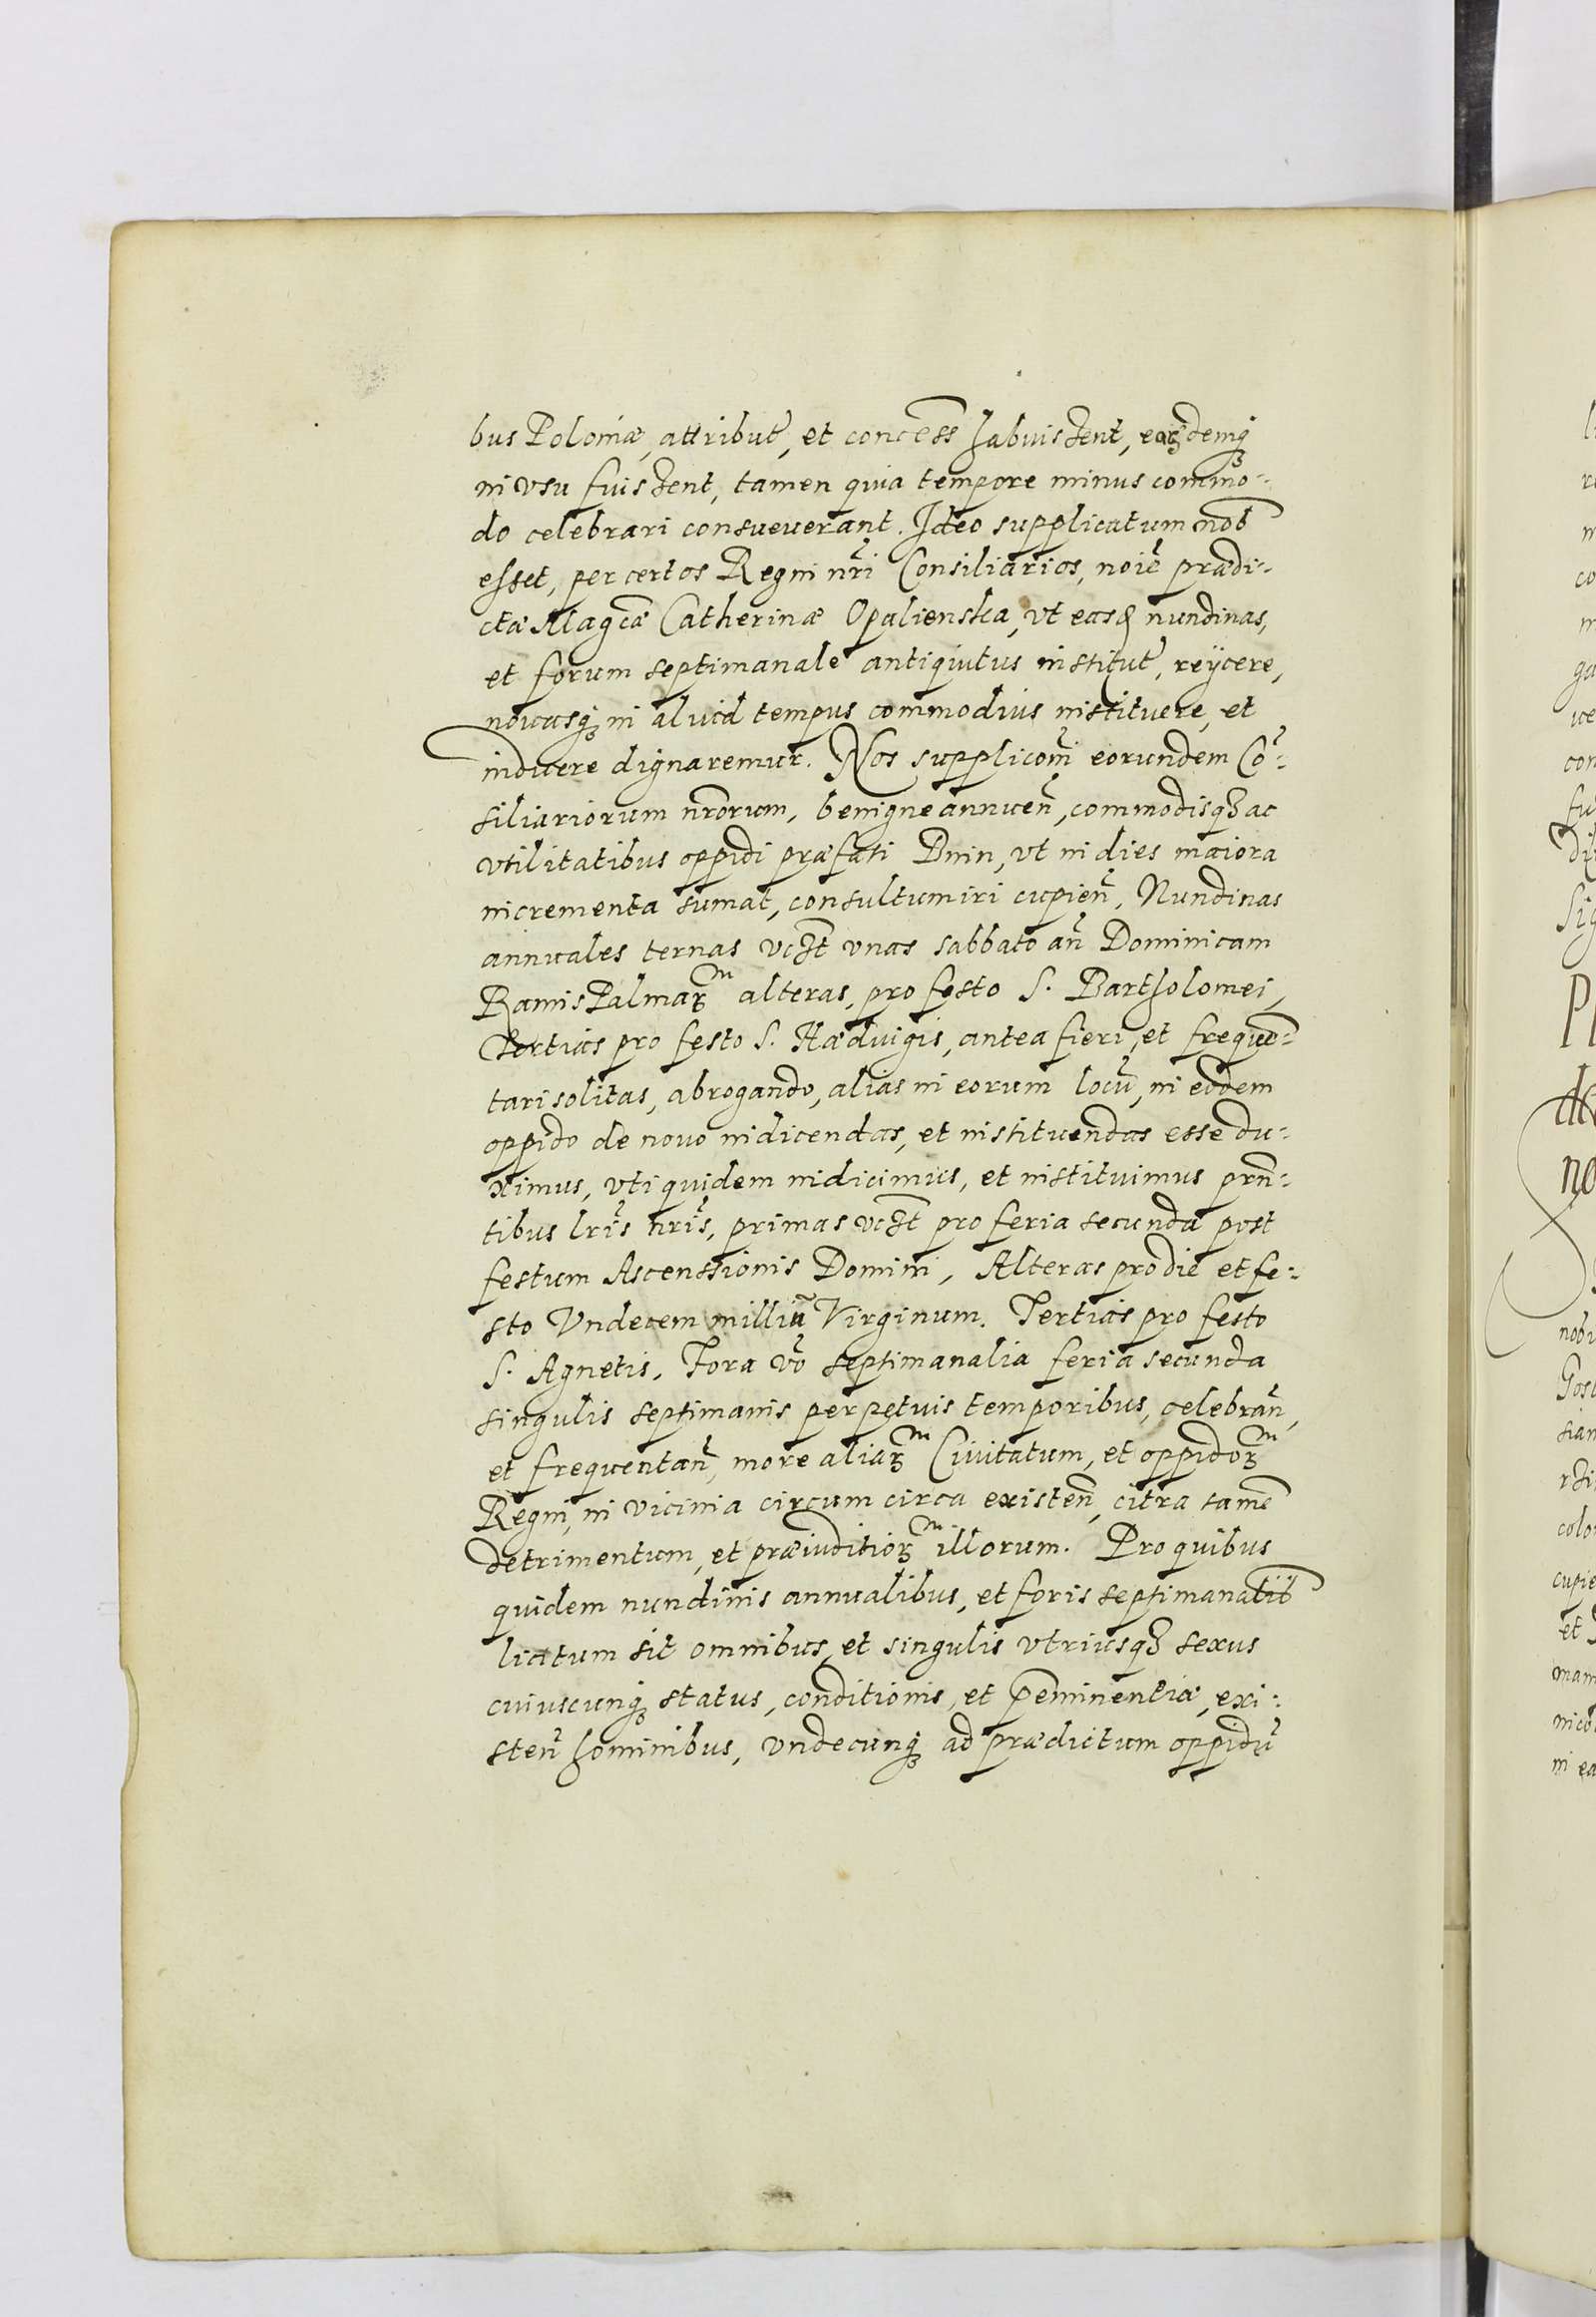 bus Poloniæ, attribut̃, et concess̃ habuissent, earꝫdemqꝫ
in vsu fuissent, tamen quia tempore minus commo-
do celebrari consueverant. Ideo supplicatum nob̃
esset, per certos Regni nr̃i Consiliarios, noiẽ prædi-
ctæ Magcæ Catherinæ Opalienska, vt easd nundinas,
et forum septimanale antiquitus institut̃, reÿcere,
novasqꝫ in aliud tempus commodius instituere, et
inducere dignaremur. Nos supplicõni eorundem Cõ-
siliariorum nrõrum, benigne annuen̄, commodisqꝫ ac
vtilitatibus oppidi præfati Bnin, vt in dies maiora
incrementa sumat, consultum iri cupien̄, Nundinas
annuales ternas vcꝫt vnas sabbato an̄ Dominicam
Ramis Palmarꝫᵐ alteras, pro festo S. Bartholomei,
Tertias pro festo S. Hæduigis, antea fieri, et frequẽ-
tari solitas, abrogando, alias in eorum locũ, in eodem
oppido de novo indicendas, et instituendas esse du-
ximus, vti quidem indicimus, et instituimus prñ-
tibus lr̃is nr̃is, primas vcꝫt pro feria secunda post
festum Ascenssionis Domini, Alteras pro die et fe-
sto Vndecem milliũ Virginum. Tertias pro festo
S. Agnetis, Fora võ septimanalia feria secunda
singulis septimanis perpetuis temporibus, celebran̄,
et frequentan̄, more aliarꝫᵐ Civitatum, et oppidorꝫᵐ
Regni, in vicinia circum circa existen̄, citra tamẽ
detrimentum, et præiuditiorꝫᵐ illorum. Pro quibus
quidem nundinis annualibus, et foris septimanalib̃
licitum sit omnibus, et singulis vtriusqꝫ sexus
cuiuscunqꝫ status, conditionis, et p̃eminentiæ, exi-
sten̄ hominibus, vndecunqꝫ ad prædictum oppidũ